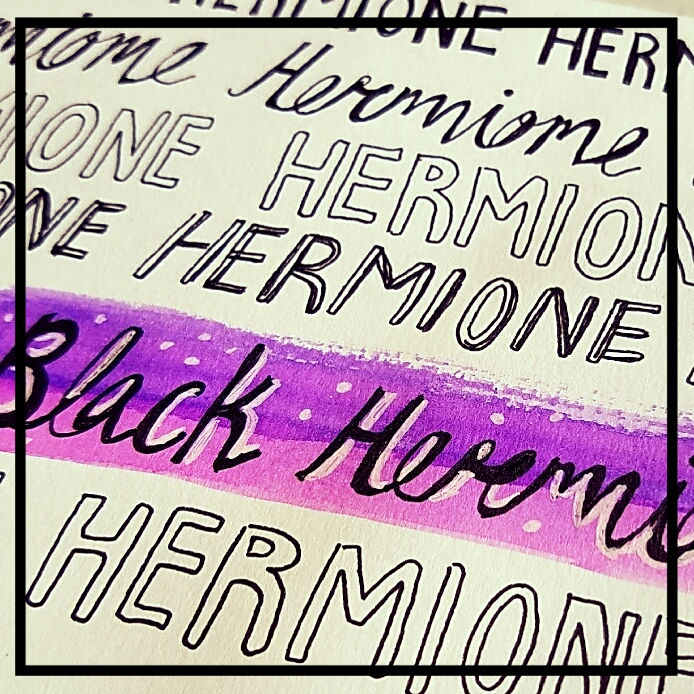 HERMIONE HERM
mione Hermione
IONE HERMION
ONE HERMIONE
Black Hermi
HERMIONE